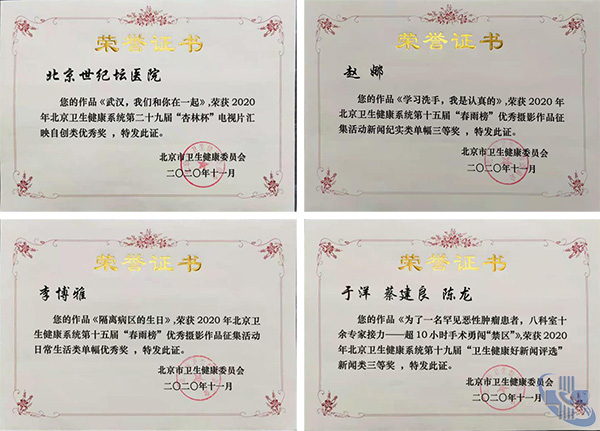 荣誉证书
北京世纪坛医院
您的作品《武汉，我们和你在一起》,荣获 2020
年北京卫生健康系统第二十九届“杏林杯”电视片汇
映自创类优秀奖 ，特发此证。
北京市卫生健康委员会
二〇二〇年十一月
荣誉证书
赵 娜
您的作品《学习洗手，我是认真的》,荣获 2020 年
北京卫生健康系统第十五届“春雨榜”优秀摄影作品征
集活动新闻纪实类单幅三等奖 ，特发此证。
北京市卫生健康委员会
二〇二〇年十一月
荣誉证书
李博雅
您的作品《隔离病区的生日》,荣获 2020 年北京卫
生健康系统第十五届“春雨榜”优秀摄影作品征集活动
日常生活类单幅优秀奖 ，特发此证。
北京市卫生健康委员会
二〇二〇年十一月
荣誉证书
于洋 蔡建良 陈龙
您的作品《为了一名罕见恶性肿瘤患者，八科室十
余专家接力——超 10 小时手术勇闯“禁区”》,荣获 2020
年北京卫生健康系统第十九届“卫生健康好新闻评选”
新闻类三等奖 ，特发此证。
北京市卫生健康委员会
二〇二〇年十一月